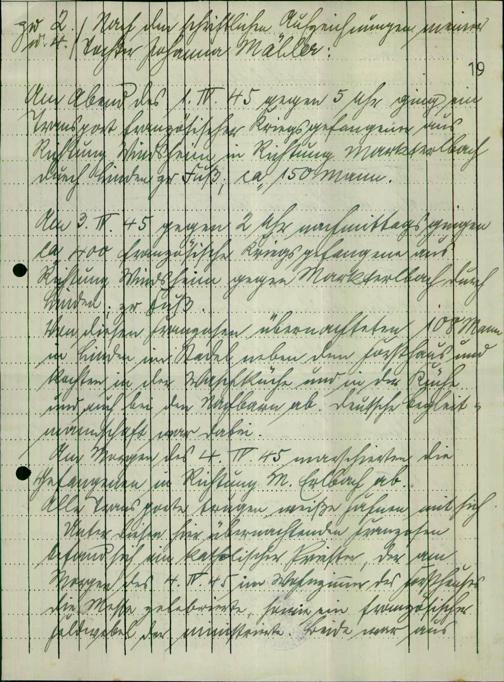 zu 2. / Nach den schriftlichen Aufzeichnungen meiner
u. 4. / Tochter Johanna Müller:
19
Am Abend des 1. IV. 45 gegen 5 Uhr ging ein
Transport französischer Kriegsgefangener aus
Richtung Windsheim in Richtung Markterlbach
durch Linden zu Fuß, ca. 150 Mann.
Am 3. IV. 45 gegen 2 Uhr nachmittags gingen
ca. 400 französische Kriegsgefangene aus
Richtung Windsheim gegen Markterlbach durch
Linden, zu Fuß.
Von diesen Franzosen übernachteten 108 Mann
in Linden im Stadel neben dem Forsthaus und
kochten in der Waschküche und in der Küche
und auch bei den Nachbarn ab. Deutsche Begleit-
mannschaft war dabei.
Am Morgen des 4. IV 45 marschierten die
Gefangenen in Richtung M. Erlbach ab.
Alle Transporte trugen weiße Fahnen mit sich.
Unter diesen hier übernachtenden Franzosen
befand sich ein katholischer Priester, der am
Morgen des 4. IV 45 im Wohnzimmer des Forsthauses
die Messe zelebrierte, sowie ein französischer
Feldwebel der ministrierte. Beide war aus